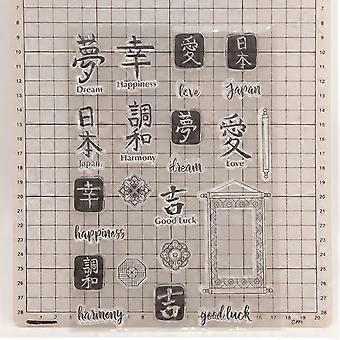 夢
Dream
幸
Happiness
愛
love
日本
Japan
日本
Japan
調和
Harmony
夢
dream
愛
Love
幸
happiness
吉
Good Luck
調和
harmony
吉
good luck
cm